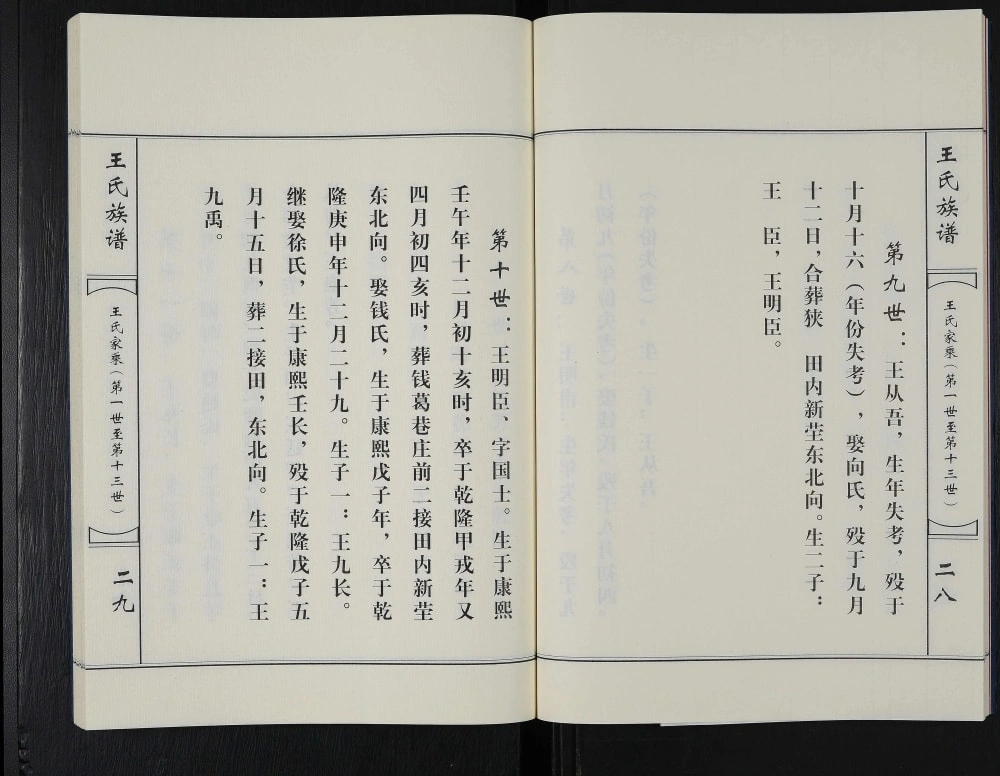 王氏族谱
王氏家乘（第一世至第十三世）
二八
第九世：王从吾，生年失考，殁于
十月十六（年份失考），娶向氏，殁于九月
十二日，合葬狭　田内新茔东北向。生二子：
王　臣，王明臣。
第十世：王明臣、字国士。生于康熙
壬午年十二月初十亥时，卒于乾隆甲戎年又
四月初四亥时，葬钱葛巷庄前二接田内新茔
东北向。娶钱氏，生于康熙戊子年，卒于乾
隆庚申年十二月二十九。生子一：王九长。
继娶徐氏，生于康熙壬长，殁于乾隆戊子五
月十五日，葬二接田，东北向。生子一：王
九禹。
王氏族谱
王氏家乘（第一世至第十三世）
二九